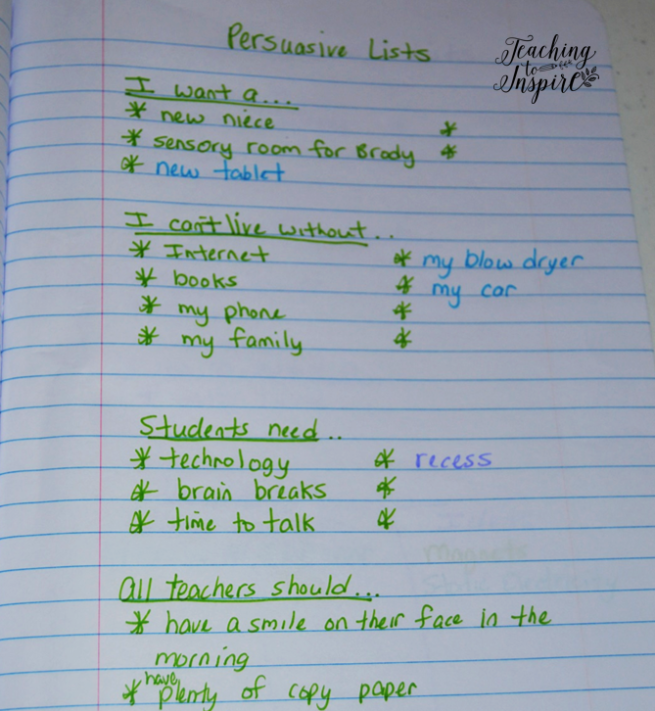 Persuasive Lists
Teaching
to
Inspire
I want a...
* new niece *
* sensory room for Brody *
* new tablet
I can't live without...
* Internet * my blow dryer
* books * my car
* my phone *
* my family *
Students need..
* technology * recess
* brain breaks *
* time to talk *
All teachers should...
* have a smile on their face in the
morning
* have plenty of copy paper
Magnets